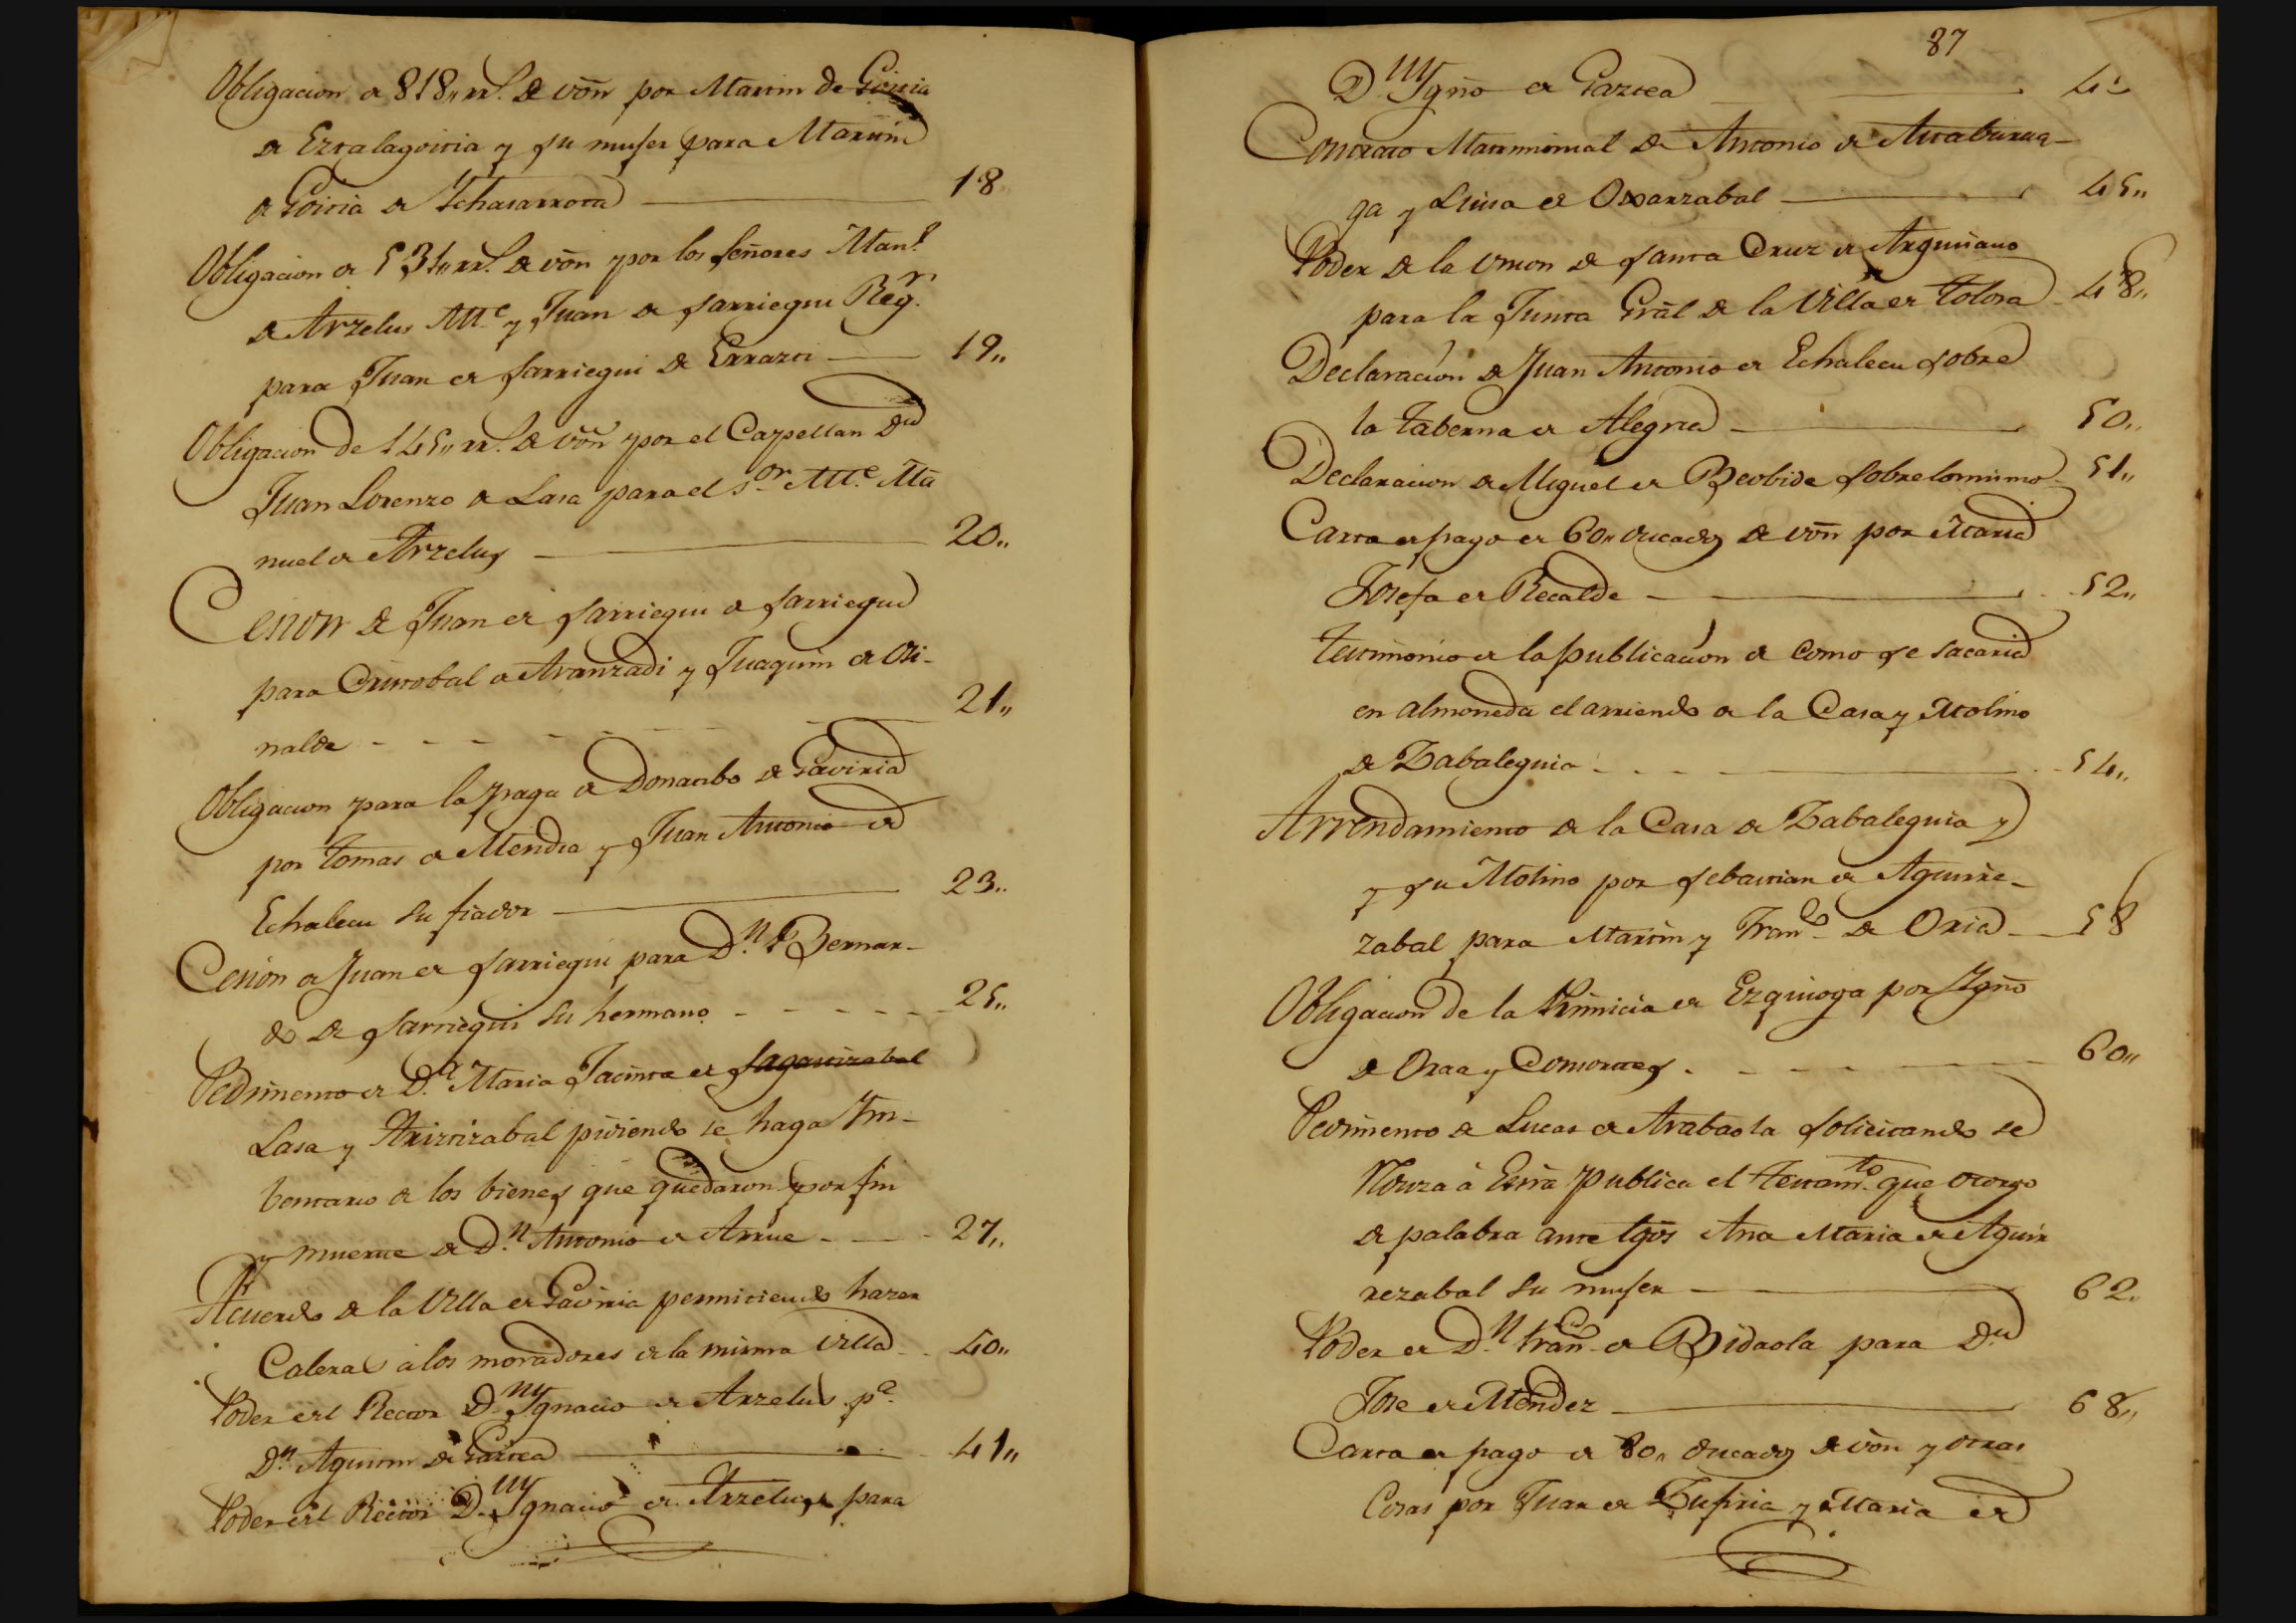 Obligacion de 818,, rr.^s de von por Martin de Goiria
de Ezcalagoitia y su muger para Martin
de Goitia de Ychasarrota — 18
Obligacion de 534,, rr.^s de von por los señores Man.^l
de Arzelus Alt.^e y Juan de Sarriegui Reg.^r
para Juan de Sarriegui de Errazti — 19,,
Obligacion de 145,, rr.^s de von por el Capellan D.^n
Juan Lorenzo de Lasa para el S.^or Alt.^e Ma
nuel de Arzelus — 20,,
Cesion de Juan de Sarriegui de Sarriegui
para Cristobal de Aranzadi y Juaquin de Ori-
nalde - - - - - 21,,
Obligacion para la paga de Donacibo de Gaviria
por Tomas de Mendia y Juan Antonio de
Echalecu su fiador — 23,,
Cesion de Juan de Sarriegui para D.^n Bernar-
do de Sarriegui su hermano - - - - 25,,
Pedimento de D.^a Maria Jacinta de
Lasa y Ariztizabal pidiendo se haga Yn-
bentario de los bienes que quedaron por fin
y muerte de D.^n Antonio de Arrue - - 27,,
Acuerdo de la Villa de Gaviria permitiendo hazer
Caleras á los moradores de la misma Villa - 40,,
Poder del Rector D.^n Ygnacio de Arzelus p.^a
D.^n Agustin de Gartea — 41,,
Poder del Rector D.^n Ygnacio de Arzelus para
87
D.^n Ygño de Gartea — 4
Contrato Matrimonial de Antonio de Ataburua-
ga y Luisa de Oxarzabal — 45,,
Poder de la Union de Santa Cruz de Arguisano
para la Junta Grãl de la Villa de Tolosa - 48,,
Declaracion de Juan Antonio de Echalecu sobre
la taberna de Alegria — 50,,
Declaracion de Miguel de Beobide sobre lo mismo - 51,,
Carta de pago de 60,, ducados de von por Maria
Josefa de Recalde — 52,,
Testimonio de la publicacion de como se sacaria
en almoneda el arriendo de la Casa y Molino
de Zabaleguia - - - 54,,
Arrendamiento de la Casa de Zabaleguia y
y su Molino por Sebastian de Aguirre-
zabal para Martin y Fran.^co de Oria — 58
Obligacion de la Primicia de Ezquioga por Ygño
de Oraa y Consortes - - - 60,,
Pedimento de Lucas de Arabaola solicitando se
reduzca á Escrã publica el testam.^to que otorgo
de palabra ante tgos Ana Maria de Aguir
rezabal su muger — 62,,
Poder de D.^n Fran.^co de Bidaola para D.^n
Jose de Mendez — 68,,
Carta de pago de 80,, ducados de von y otras
Cosas por Juan de Zufiria y Maria de